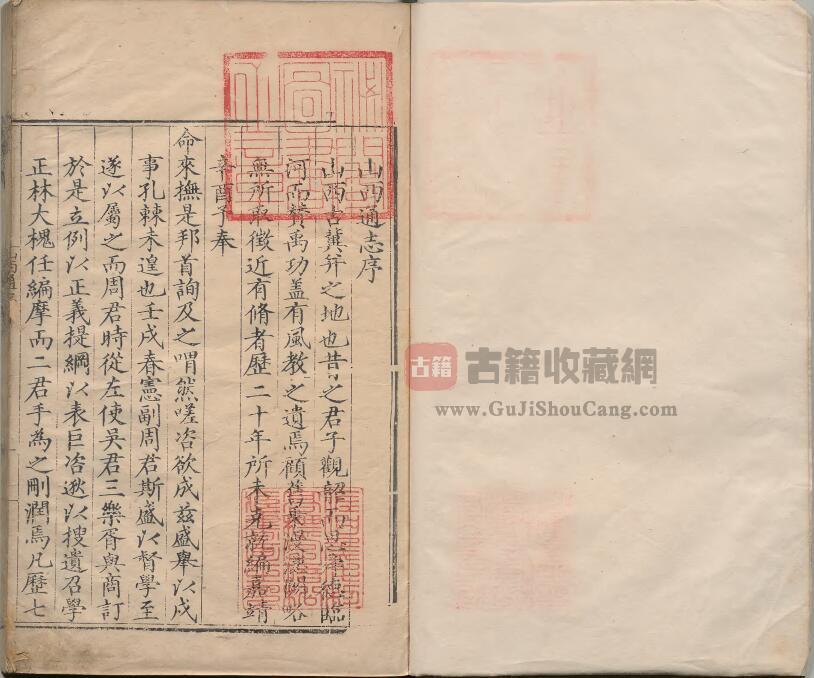 山西通志序
山西古冀并之地也昔之君子觀韶而思帝德臨
河而贊禹功蓋有風教之遺焉顧舊乘漫患闕畧
無所取徵近有脩者歷二十年所未克就編嘉靖
辛酉予奉
命來撫是邦首詢及之喟然嗟咨欲成兹盛舉以戍
事孔棘未遑也壬戌春憲副周君斯盛以督學至
遂以屬之而周君時從左使吳君三樂胥與商訂
於是立例以正義提綱以表巨咨遯以搜遺召學
正林大槐任編摩而二君手為之刪潤焉凡歷七
古籍
古籍收藏網
www.GuJiShouCang.com